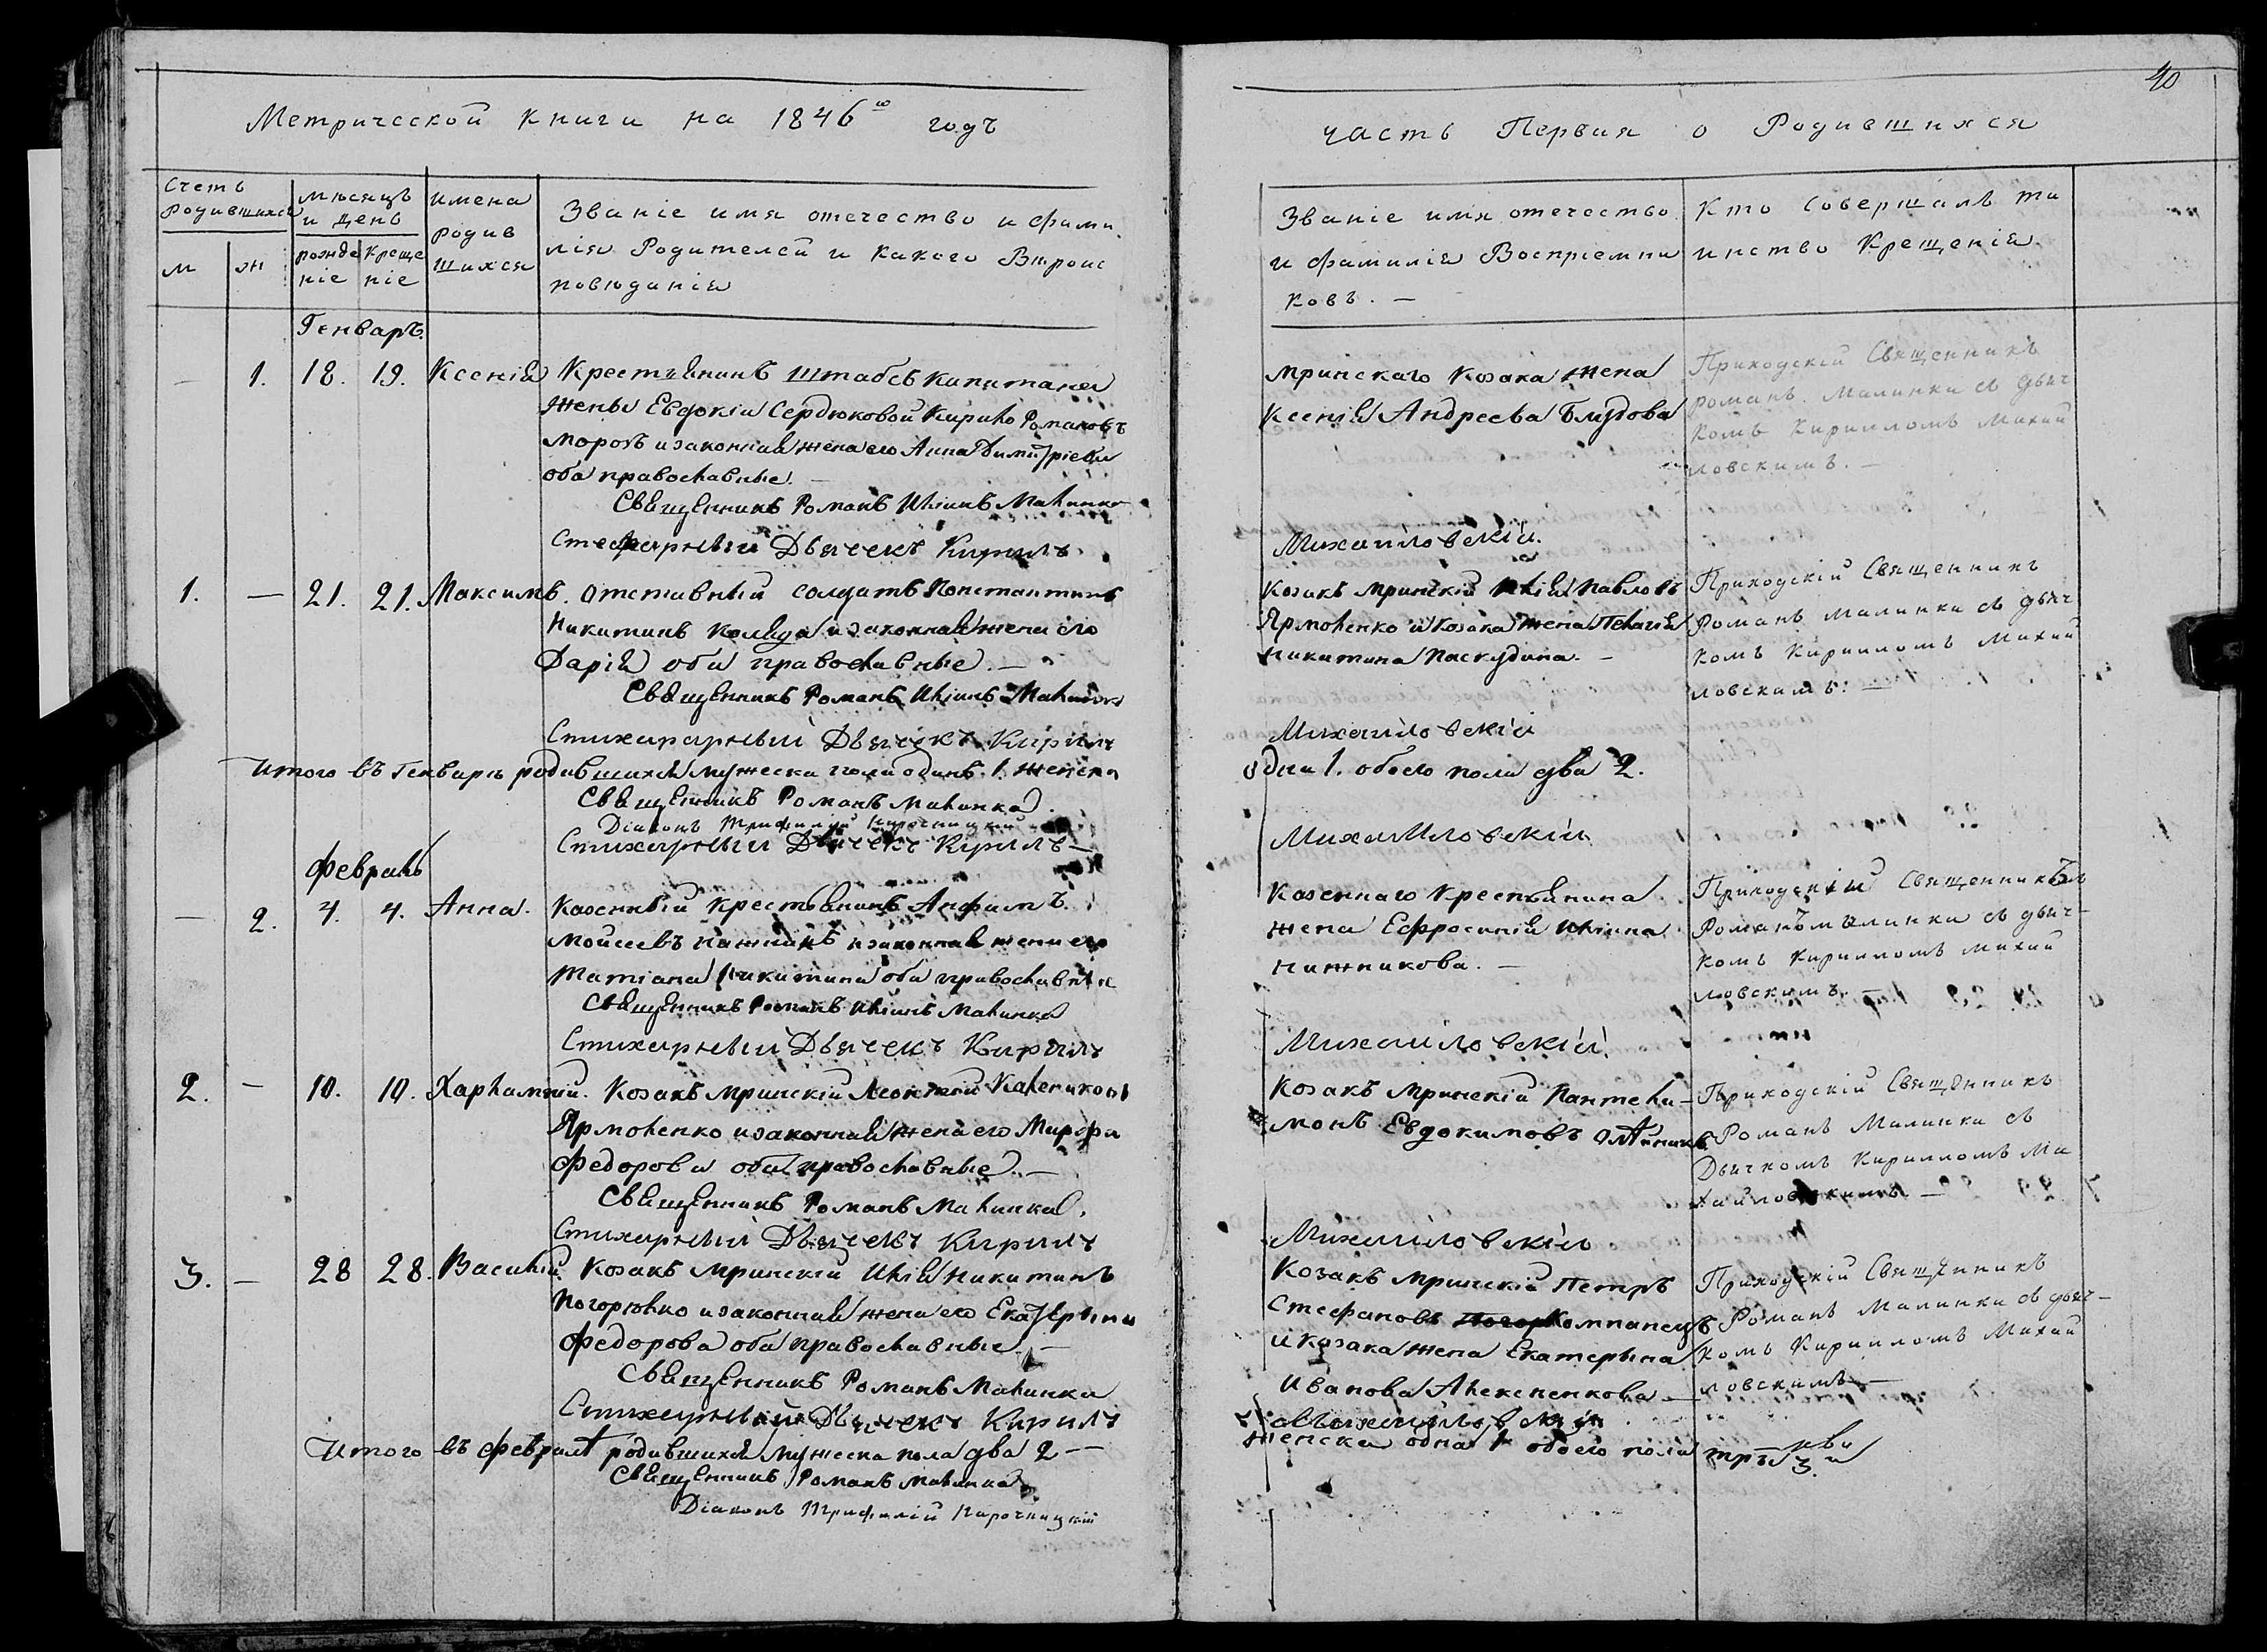 Метрической книги на 1846ю годъ
Счетъ Родившихся
мѣсяцъ и день
имена родив шихся
Званіе имя отечество и фами
лія Родителей и какого Вѣроис
повѣданія
м
ж
рожде ніе
Креще ніе
Генварь.
— 1. 18. 19. Ксенія Крестьянинъ Штабсъ капитана
жены Евдокіи Сердюковой Кирило Романовъ
Морозъ и законная жена его Анна Димитріева
оба православные. —
Священникъ Романъ Иліинъ Малинка
Стихарный Дьячекъ Кирилъ
1. — 21. 21. Максимъ. Отставный солдатъ Константинъ
Никитинъ Коляда и законная жена его
Дарія оба православные. —
Священникъ Романъ Иліинъ Малинка
Стихарный Дьячекъ Кирилъ
Итого въ Генварѣ родившихся мужеска пола одинъ. 1. женска
Священникъ Романъ Малинка.
Діаконъ Трифилій
Стихарный Дьячекъ Кирилъ —
Февраль
— 2. 4. 4. Анна. Казенный Крестьянинъ Анфимъ
Моисеевъ и законная жена его
Татіана Никитина оба православные
Священникъ Романъ Иліинъ Малинка
Стихарный Дьячекъ Кирилъ
2. — 10. 10. Харлампій. Козакъ Мринскій Леонтій
Ярмоленко и законная жена его Марфа
Федорова оба православные. —
Священникъ Романъ Малинка.
Стихарный Дьячекъ Кирилъ
3. — 28 28. Василій. Козакъ Мринскій Илія Никитинъ
и законная жена его Екатерина
Федорова оба православные. —
Священникъ Романъ Малинка
Стихарный Дьячекъ Кирилъ
Итого въ Февралѣ родившихся мужеска пола два 2 —
Священникъ Романъ Малинка
Діаконъ Трифилій
40
часть Первая о Родившихся
Званіе имя отечество
и фамилія Воспріемни
ковъ. —
Кто Совершалъ та
инство Крещенія.
Мринскаго Козака жена
Ксенія Андреева Блудова
Приходскій Священникъ
Романъ Малинка съ дьяч
комъ Кирилломъ Михай
ловскимъ. —
Михайловскій.
Козакъ Мринскій Илія Павловъ
Ярмоленко и Козака жена Пелагія
Никитина Паскудина. —
Приходскій Священникъ
Романъ Малинка съ дьяч
комъ Кирилломъ Михай
ловскимъ: —
Михайловскій
одна 1. обоего пола два 2.
Михайловскій
Казеннаго Крестьянина
жена Ефросинія Иліина
Нижникова. —
Приходскій Священникъ
Романъ Малинка съ дьяч-
комъ Кирилломъ Михай
ловскимъ. —
Михайловскій.
Козакъ Мринскій Пантели-
монъ Евдокимовъ
Приходскій Священникъ
Романъ Малинка съ
Дьячкомъ Кирилломъ Ми
хайловскимъ. —
Михайловскій
Козакъ Мринскій Петръ
Стефановъ Компанецъ
и козака жена Екатерина
Иванова Алексенкова —
Приходскій Священникъ
Романъ Малинка съ дьяч-
комъ Кирилломъ Михай
ловскимъ —
Михайловскій
женска одна 1 обоего пола три 3.